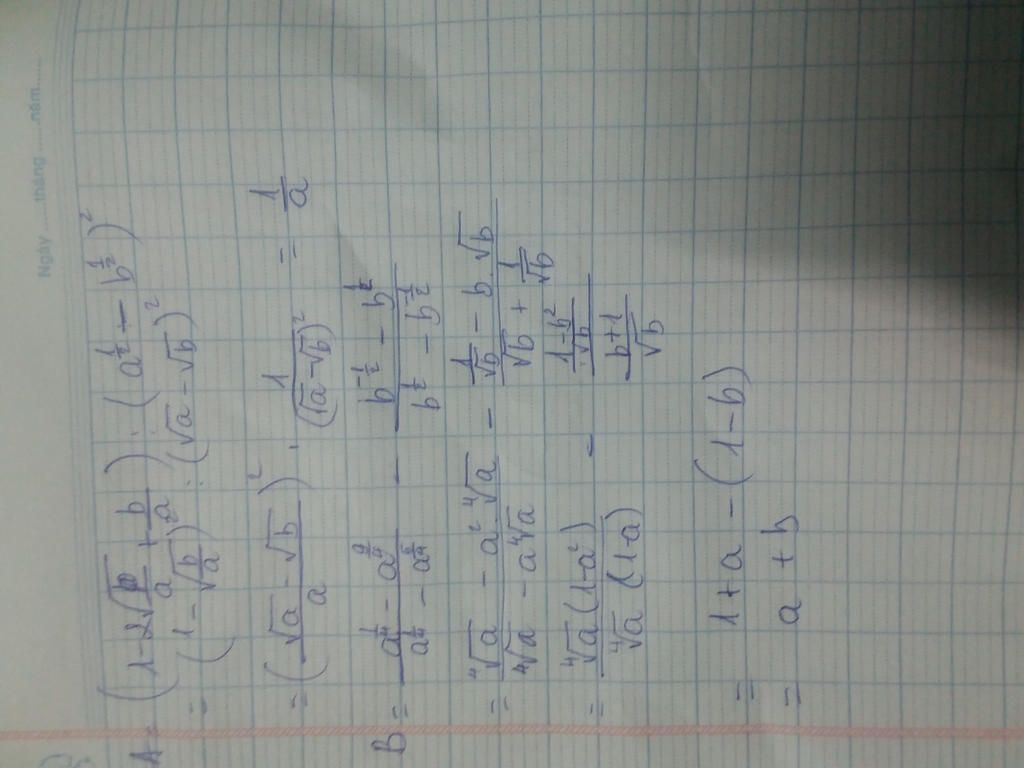 Ngày ..... tháng ..... năm.....
A = (1 - 2√(b/a) + b/a) : (a^(1/2) - b^(1/2))²
= (1 - √(b/a))² : (√a - √b)²
= ((√a - √b)/a)² . 1/(√a - √b)² = 1/a
B = (a^(1/4) - a^(9/4))/(a^(1/4) - a^(5/4)) - (b^(-1/2) - b^(3/2))/(b^(1/2) - b^(-1/2))
= (⁴√a - a² ⁴√a)/(⁴√a - a ⁴√a) - (1/√b - b.√b)/(√b + 1/√b)
= (⁴√a (1-a²))/(⁴√a (1-a)) - ((1-b²)/√b)/((b+1)/√b)
= 1 + a - (1 - b)
= a + b